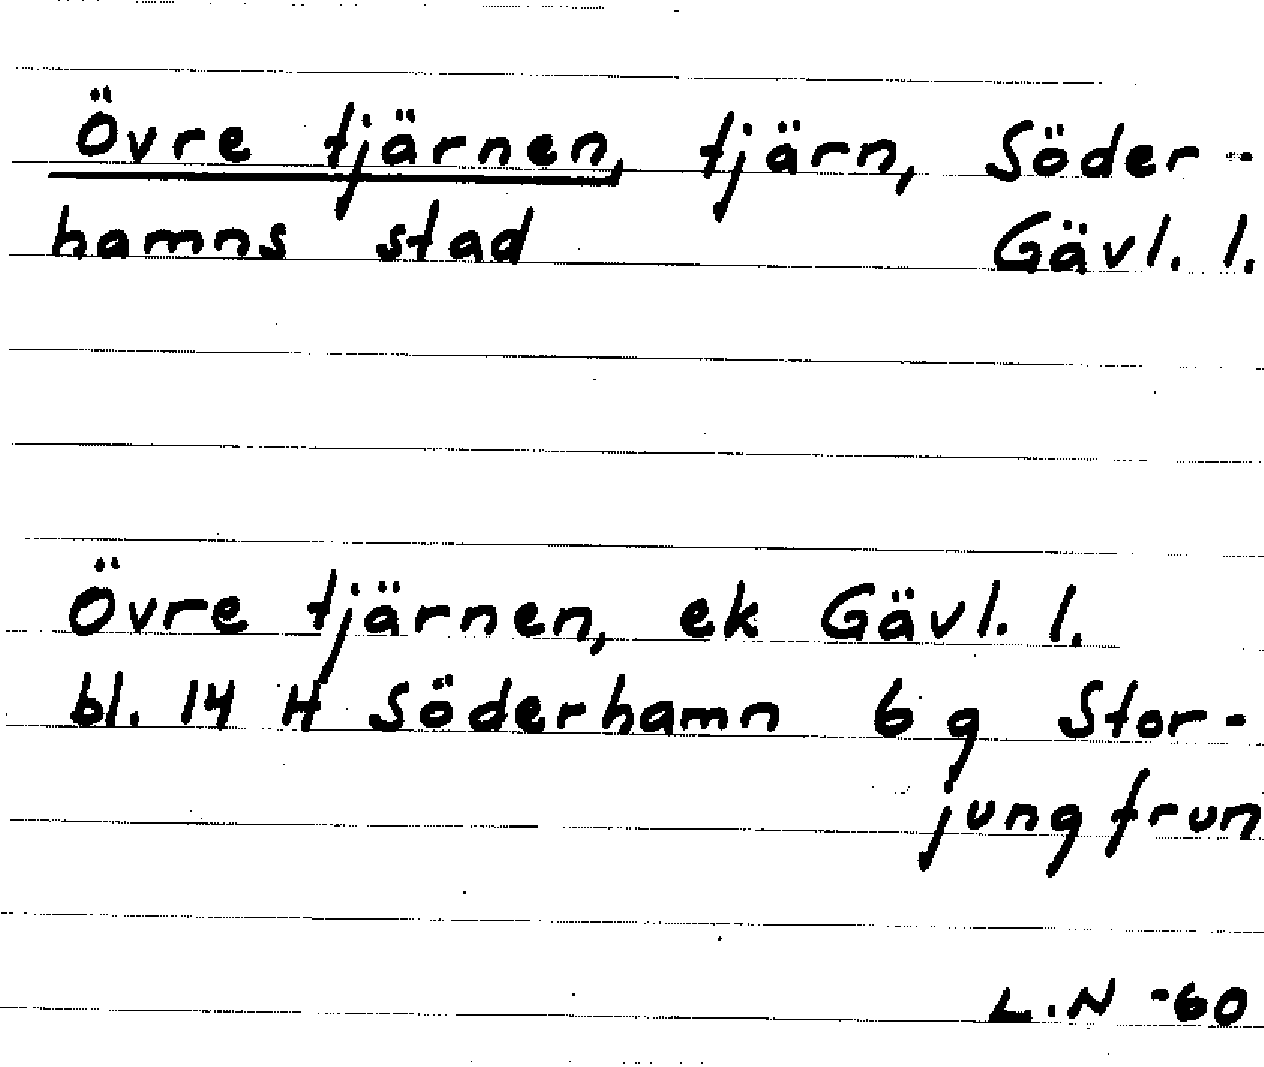 Övre tjärnen, tjärn, Söder-
hamns stad Gävl. l.
Övre tjärnen, ek Gävl. l.
bl. 14 H Söderhamn 6 g Stor-
jungfrun
L.N -60